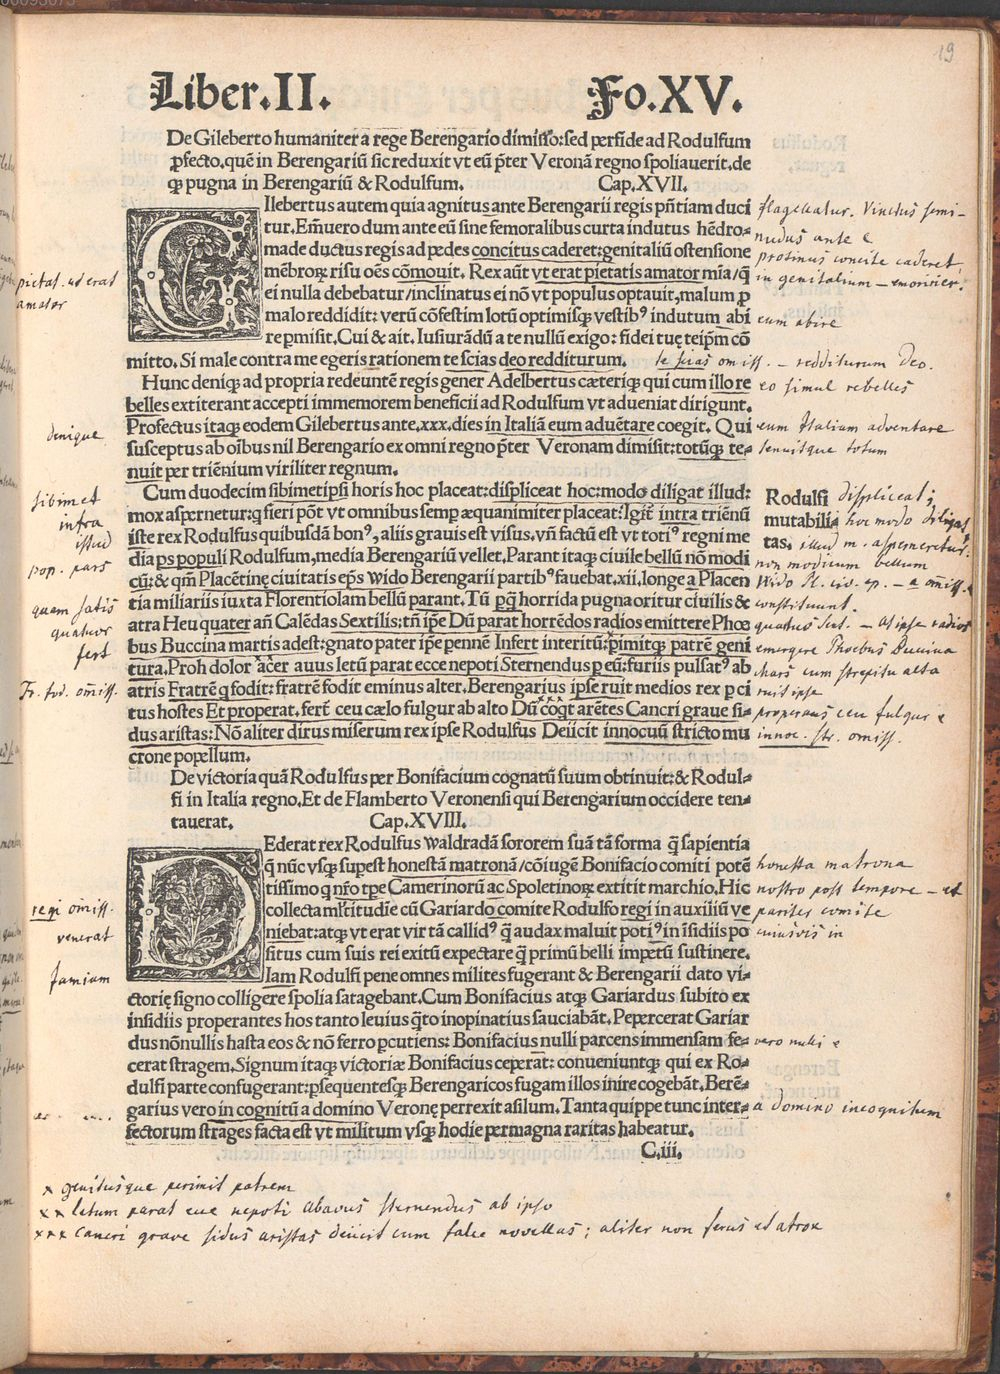 19
Liber.II. Fo.XV.
De Gileberto humaniter a rege Berengario dimisso:sed perfide ad Rodulfum
ꝓfecto,quē in Berengariū sic reduxit vt eū p̄ter Veronā regno spoliauerit.de
qꝫ pugna in Berengariū & Rodulfum. Cap.XVII.
GIlebertus autem quia agnitus ante Berengarii regis pn̄tiam duci
tur.Em̄uero dum ante eū sine femoralibus curta indutus hēdro=
made ductus regis ad pedes concitus caderet:genitaliū ostensione
mēbroꝝ risu oēs cōmouit. Rex aūt vt erat pietatis amator mia/q̄
ei nulla debebatur/inclinatus ei nō vt populus optauit,malum ꝓ
malo reddidit: verū cōfestim lotū optimisqꝫ vestibꝰ indutum abi
re pmisit.Cui & ait. Iusiurādū a te nullū exigo: fidei tuę teip̄m cō
mitto. Si male contra me egeris rationem te scias deo redditurum.
Hunc deniqꝫ ad propria redeuntē regis gener Adelbertus cæteriqꝫ qui cum illo re
belles extiterant accepti immemorem beneficii ad Rodulfum vt adueniat dirigunt.
Profectus itaqꝫ eodem Gilebertus ante.xxx.dies in Italiā eum aduētare coegit. Qui
susceptus ab oībus nil Berengario ex omni regno p̄ter Veronam dimisit:totūqꝫ te=
nuit per triēnium viriliter regnum.
Cum duodecim sibimetipsi horis hoc placeat:displiceat hoc:modo diligat illud:
mox aspernetur:q sieri pōt vt omnibus semp æquanimiter placeat:Igīt intra triēnū
iste rex Rodulfus quibusdā bonꝰ,aliis grauis est visus,vn̄ factū est vt totiꝰ regni me
dia ps populi Rodulfum,media Berengariū vellet.Parant itaqꝫ ciuile bellū nō modi
cū:& qm̄ Placētinę ciuitatis ep̄s Wido Berengarii partibꝰ fauebat.xii.longe a Placen
tia miliariis iuxta Florentiolam bellū parant.Tū pq̄ horrida pugna oritur ciuilis &
atra Heu quater an̄ Calēdas Sextilis:tn̄ ip̄e Dū parat horrēdos radios emittere Phœ
bus Buccina martis adest:gnato pater ip̄e pennē Infert interitū:pimitqꝫ patrē geni
tura.Proh dolor acer auus letū parat ecce nepoti Sternendus ꝑ eū:furiis pulsatꝰ ab
atris Fratrē q fodit:fratrē fodit eminus alter.Berengarius ipse ruit medios rex ꝑ ci
tus hostes Et properat.fert ceu cælo fulgur ab alto Dū coq̄t arētes Cancri graue si=
dus aristas:Nō aliter dirus miserum rex ipse Rodulfus Deiicit innocuū stricto mu
crone popellum.
De victoria quā Rodulfus per Bonifacium cognatū suum obtinuit:& Rodul=
fi in Italia regno.Et de Flamberto Veronensi qui Berengarium occidere ten=
tauerat. Cap.XVIII.
DEderat rex Rodulfus Waldradā sororem suā tā forma q̄ sapientia
q̄ nūc vsqꝫ supest honestā matronā/cōiugē Bonifacio comiti potē
tissimo q nr̄o tpe Camerinorū ac Spoletinoꝝ extitit marchio.Hic
collecta ml̄titudie cū Gariardo comite Rodulfo regi in auxiliū ve
niebat:atqꝫ vt erat vir tā callidꝰ q̄ audax maluit potiꝰ in īsidiis po
situs cum suis rei exitū expectare q̄ primū belli impetū sustinere.
Iam Rodulfi pene omnes milites fugerant & Berengarii dato vi=
ctorię signo colligere spolia satagebant.Cum Bonifacius atqꝫ Gariardus subito ex
insidiis properantes hos tanto leuius q̄to inopinatius sauciabāt.Pepercerat Gariar
dus nōnullis hasta eos & nō ferro pcutiens: Bonifacius nulli parcens immensam fe=
cerat stragem.Signum itaqꝫ victoriæ Bonifacius ceperat: conueniuntqꝫ qui ex Ro=
dulfi parte confugerant:psequentesqꝫ Berengaricos fugam illos inire cogebāt.Berē=
garius vero in cognitū a domino Veronę perrexit asilum.Tanta quippe tunc inter=
fectorum strages facta est vt militum vsqꝫ hodie permagna raritas habeatur.
C.iii.
Rodulfi
mutabili=
tas.
flagellatur. Vinctus semi-
nudus ante e
protinus concite caderet,
in genitalium
eum abire
te scias omiss. - redditurum Deo.
eo simul rebelles
eum Italiam adventare
tenuitque totum
displiceat;
hoc modo diligat
illud m. aspernetur.
non modicum bellum
Wido Pl. civ. ep. - a omiss.
constituunt.
quatuor Sext. - ast ipse radios
emergere Phoebus Buccina
Mars cum strepitu alta
ruit ipse
properans ceu fulgur e
innoc. str. omiss.
honesta matrona
nostro post tempore - et
pariter comite
cuiusvis in
vero nulli e
a domino incognitum
pietat. ut erat
amator
denique
sibimet
infra
pop. pars
quam satis
quatuor
fert
Fr. fod. omiss.
regi omiss.
venerat
famian
x genitusque perimit patrem
xx letum parat eue nepoti Abavus sternendus ab ipso
xxx Cancri grave sidus aristas deiicit cum falce novellas; aliter non ferus et atrox